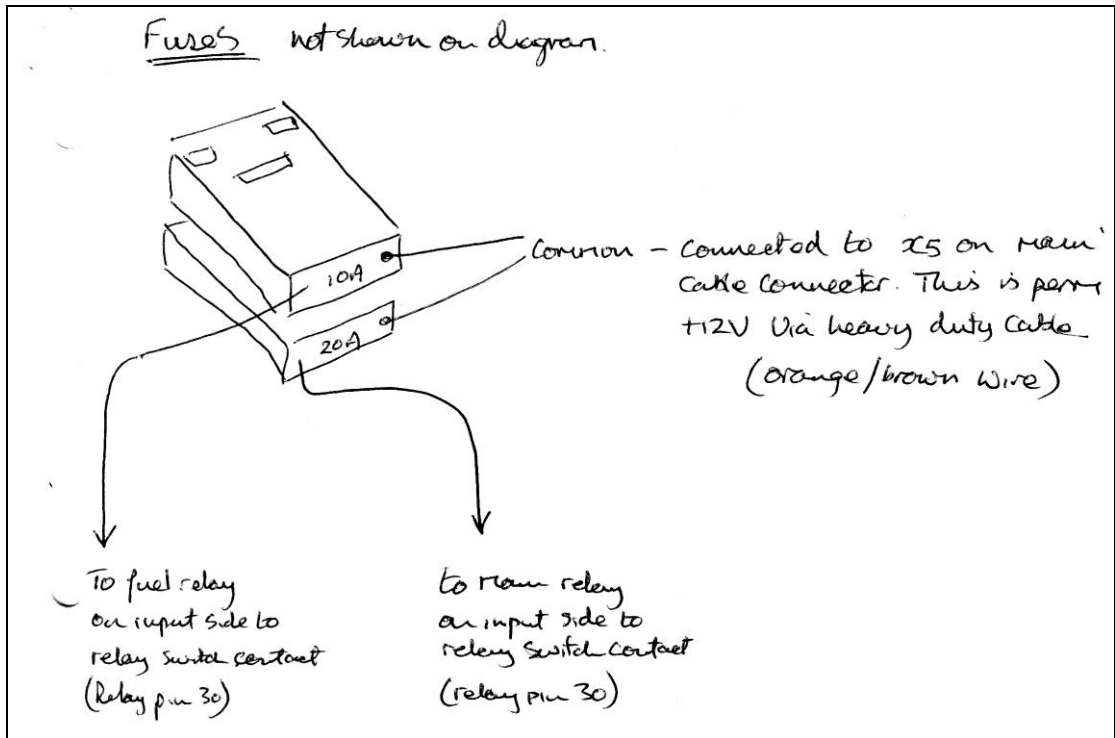 Fuses not shown on diagram.
10A
20A
Common - Connected to X5 on main
Cable Connector. This is perm
+12V Via heavy duty Cable
(orange/brown wire)
To fuel relay
on input side to
relay switch contact
(Relay pin 30)
to main relay
on input side to
relay switch contact
(relay pin 30)